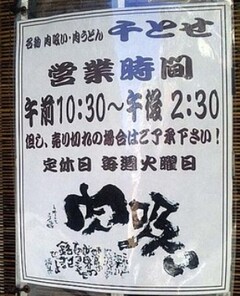 名物 肉吸い・肉うどん 千とせ
営業時間
午前10:30～午後2:30
但し、売り切れの場合はご了承下さい!
定休日 毎週火曜日
肉吸い